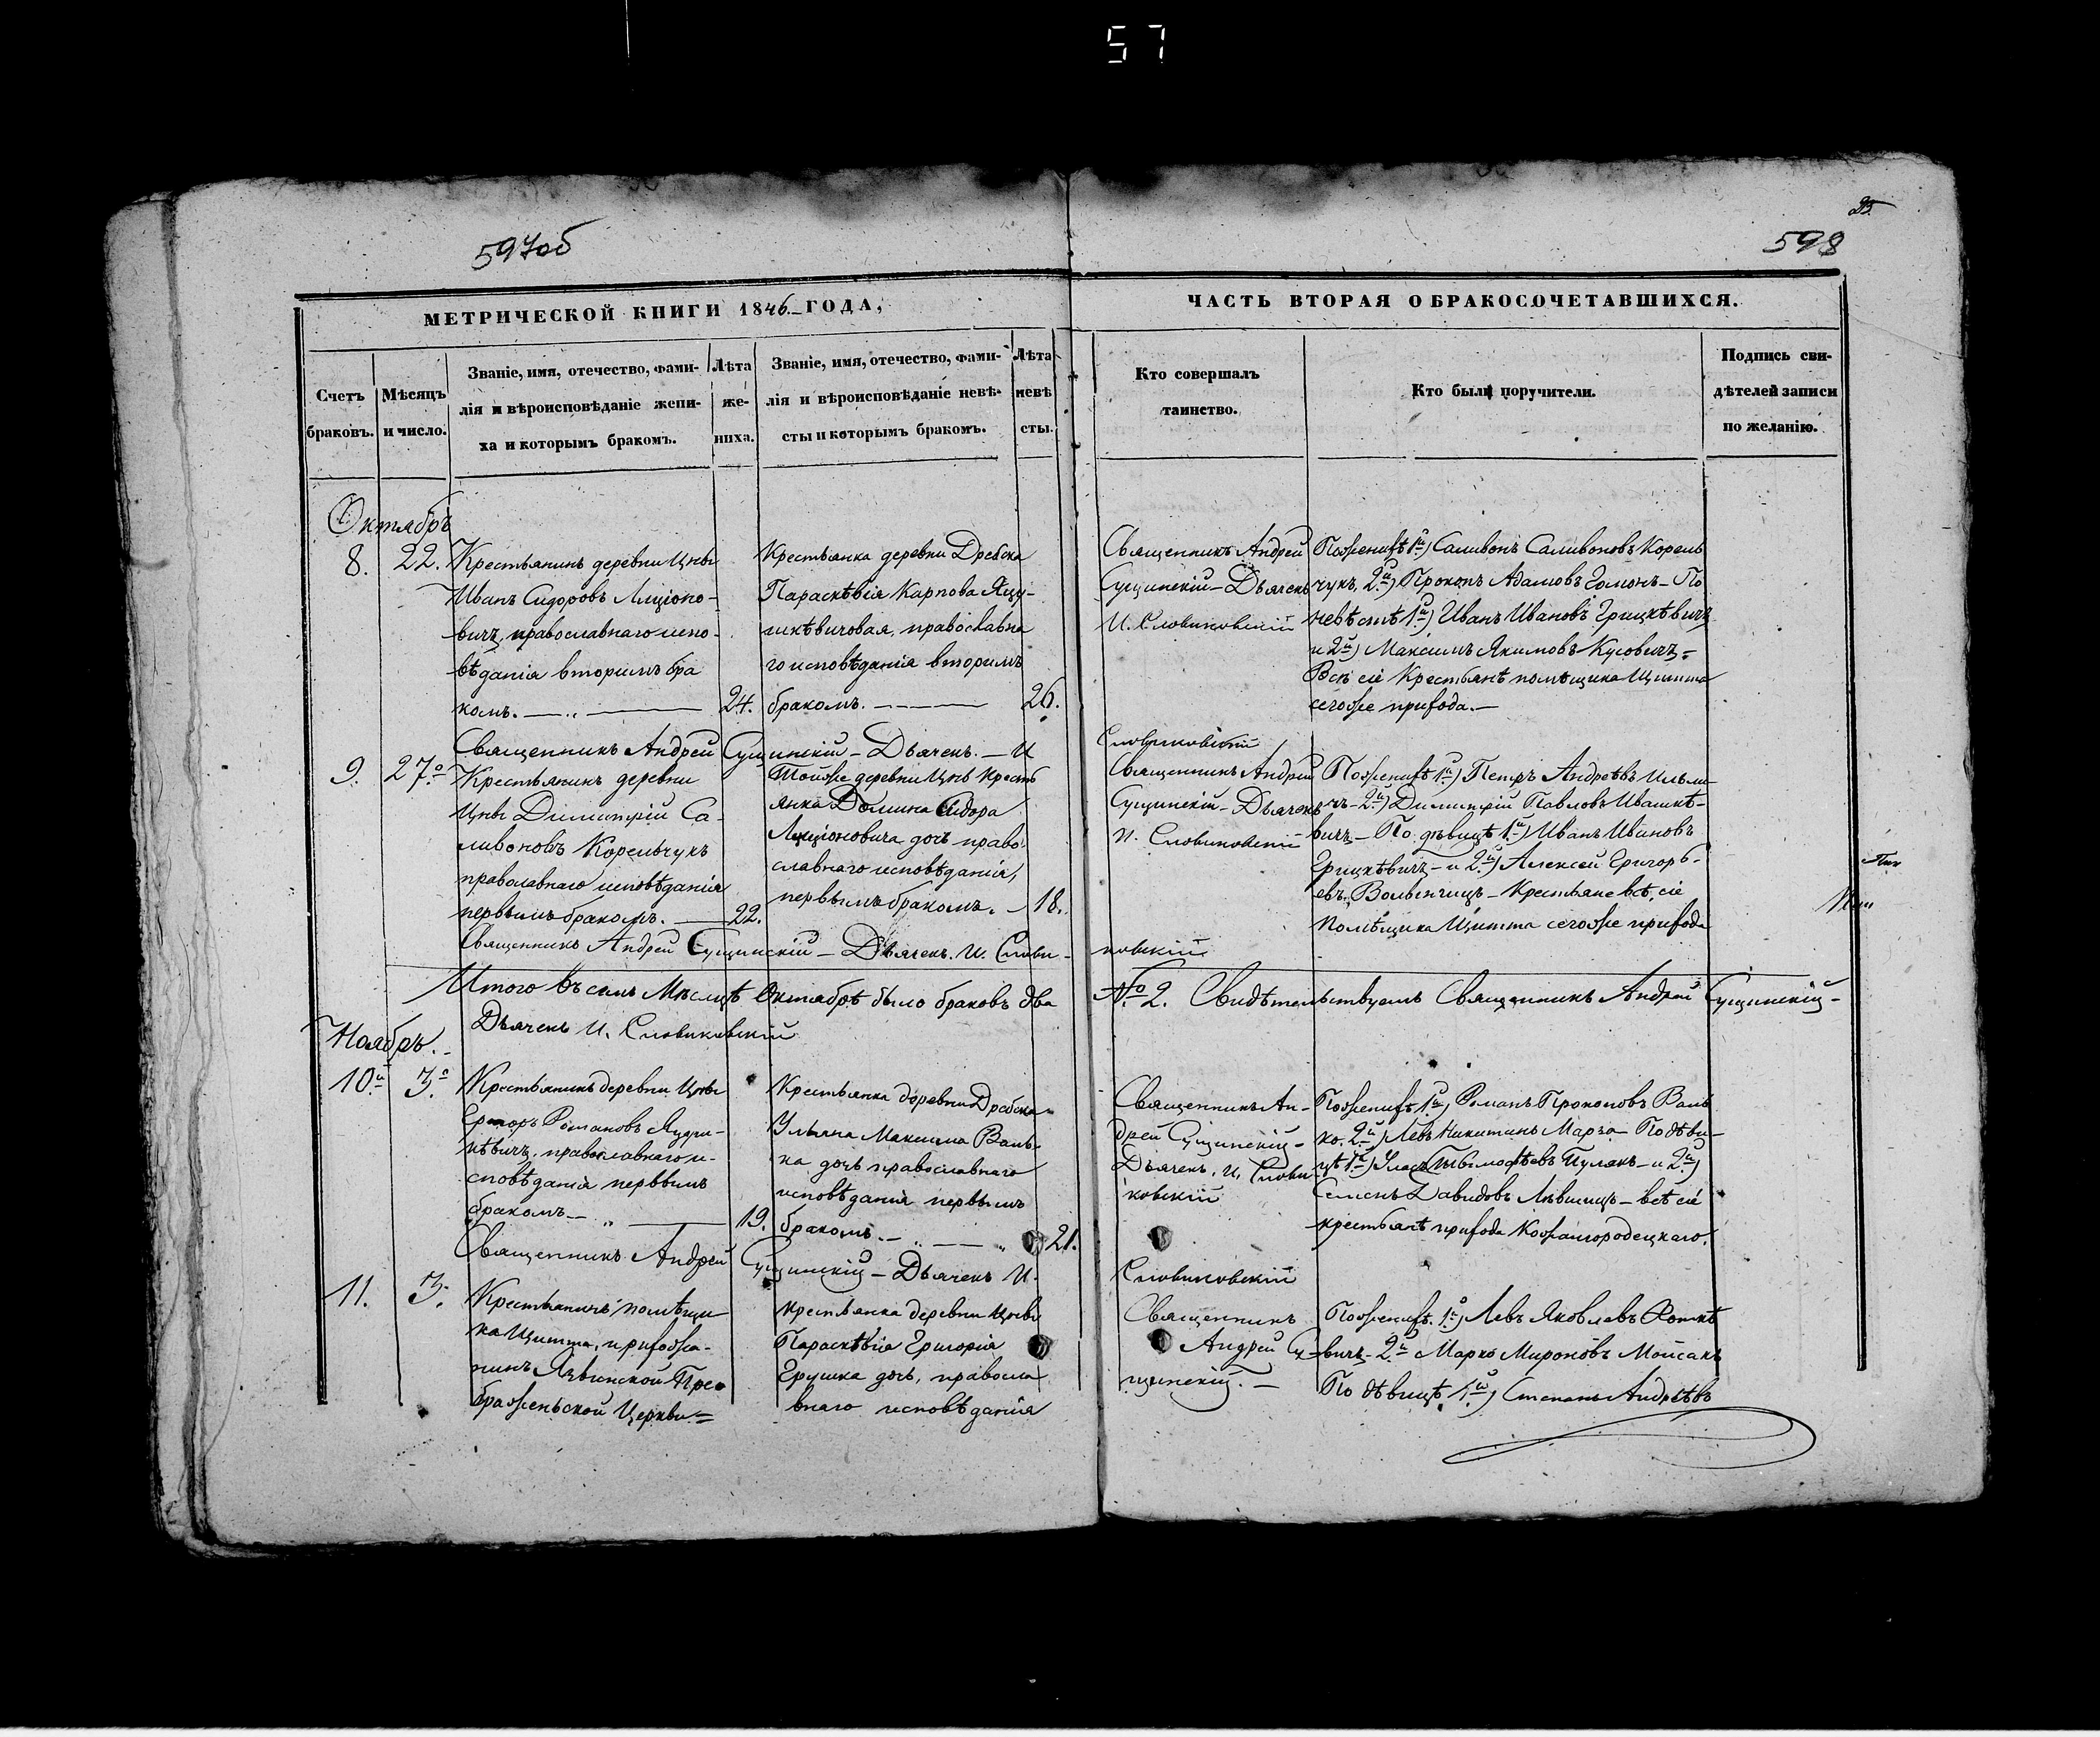 57
597об
598
МЕТРИЧЕСКОЙ КНИГИ 1846. ГОДА,
ЧАСТЬ ВТОРАЯ О БРАКОСОЧЕТАВШИХСЯ.
Счетъ браковъ.
Мѣсяцъ и число.
Званіе, имя, отечество, фами-
лія и вѣроисповѣданіе жени-
ха и которымъ бракомъ.
Лѣта же-ниха.
Званіе, имя, отечество, фами-
лія и вѣроисповѣданіе невѣ-
сты и которымъ бракомъ.
Лѣта невѣ сты.
Кто совершалъ
таинство.
Кто были поручители.
Подпись сви-
дѣтелей записи
по желанію.
Октябрь
8. 22. Крестьянинъ деревни Цны
Иванъ Сидоровъ Лиціоно-
вичъ, православнаго испо-
вѣданія вторымъ бра
комъ. 24.
Крестьянка деревни Дребска
Параскѣвія Карпова Яцу-
шкѣвичовая, православна
го исповѣданія вторымъ
бракомъ. 26.
Священникъ Андрей
Сущинскій – Дьячекъ
И. Словиковскій
По женихѣ 1й) Саливонъ Саливоновъ Корень
чукъ, 2й) Прокопъ Адамовъ Гомонъ – По
невѣстѣ 1й) Иванъ Ивановъ Грицкѣвичъ
и 2й) Максимъ Якимовъ Кусовичъ =
Всѣ сіе Крестьянѣ помѣщика Щитта
сегоже прихода. –
Священникъ Андрей Сущинскій – Дьячекъ. – И
Словиковскій
9. 27го Крестьянинъ деревни
Цны Димитрій Са-
ливоновъ Корельчукъ
православнаго исповѣданія
первымъ бракомъ. 22.
Тойже деревни Цны Кресть
янка Домина Сидора
Лиціоновича дочь право
славнаго исповѣданія,
первымъ бракомъ. – 18.
Священникъ Андрей
Сущинскій – Дьячекъ
И. Словиковскій
По женихѣ 1й) Петръ Андреѣвъ Ильи-
чъ – 2й) Димитрій Павловъ Ивашкѣ-
вичъ – По дѣвицѣ 1й) Иванъ Ивановъ
Грицкѣвичъ – и 2й) Алексей Григорь-
евъ Волынчицъ – Крестьяне всѣ сіе
Помѣщика Щитта сегоже прихода
Священникъ Андрей Сущинскій – Дьячекъ. И. Слови-
ковскій
Итого въ семъ Мѣсяцѣ Октябрѣ было браковъ два
№ 2. Свидѣтельствуемъ Священникъ Андрей Сущинскій –
Дьячекъ И. Словиковскій
Ноябрь.
10й 3о Крестьянинъ деревни Цны
Романовъ
нѣвичъ, православнаго и-
сповѣданія первымъ
бракомъ – 19.
Крестьянка деревни Дребска
Ульяна Максима Вань-
ка дочь православнаго
исповѣданія первымъ
бракомъ. – 21.
Священникъ Ан-
дрей Сущинскій –
Дьячекъ, И. Слови
ковскій
По женихѣ 1й) Романъ Прокоповъ Вань
ко, 2й) Левъ Никитинъ Марго – По дѣви-
цѣ 1й) Уласъ Тимофѣевъ Пулякъ – и 2й)
Семенъ Давидовъ Лѣвшицъ – всѣ сіе
крестьянѣ прихода Кожангородецкаго.
Священникъ Андрей Сущинскій – Дьячекъ И.
Словиковскій
11. 3. Крестьянинъ помѣщи
ка Щитта, прихожа-
нинъ Язвинской Прео
браженьской Церкви =
крестьянка деревни Цны
Параскѣвія Григорія
Грушка дочь, правосла
внаго исповѣданія
Священникъ
Андрей Су-
щинскій. –
По женихѣ. 1й) Левъ Яковлевъ Хоткѣ
вичъ – 2й Марко Мироновъ Мойсакъ
По дѣвицѣ 1й) Степанъ Андреѣвъ